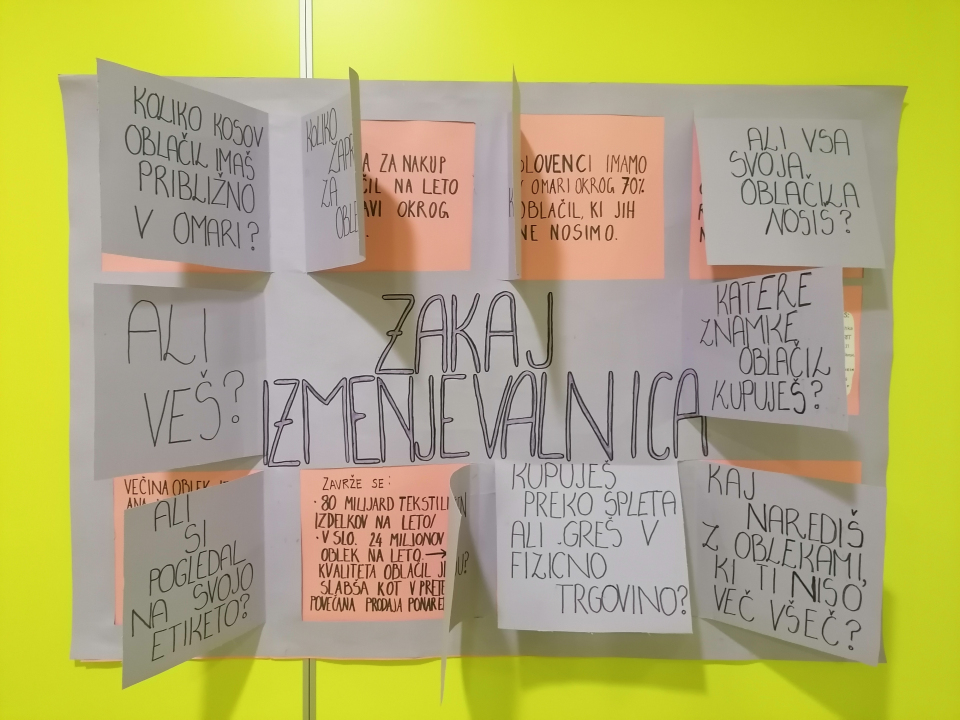 KOLIKO KOSOV
OBLAČIL IMAŠ
PRIBLIŽNO
V OMARI?
KOLIKO
ZAPR
ZA
OBLE
A ZA NAKUP
ČIL NA LETO
AVI OKROG
SLOVENCI IMAMO
V OMARI OKROG 70%
OBLAČIL, KI JIH
NE NOSIMO.
ALI VSA
SVOJA
OBLAČILA
NOSIŠ?
ALI
VEŠ?
ZAKAJ
IZMENJEVALNICA
KATERE
ZNAMKE
OBLAČIL
KUPUJEŠ?
VEČINA OBLEK
ALI
SI
POGLEDAL
NA SVOJO
ETIKETO?
ZAVRŽE SE:
· 80 MILIJARD TEKSTILN
IZDELKOV NA LETO/
· V SLO. 24 MILIONOV
OBLEK NA LETO →
KVALITETA OBLAČIL JE
SLABŠA KOT V PRETE
POVEČANA PRODAJA PONARE
KUPUJEŠ
PREKO SPLETA
ALI GREŠ V
FIZIČNO
TRGOVINO?
KAJ
NAREDIŠ
Z OBLEKAMI,
KI TI NISO
VEČ VŠEČ?